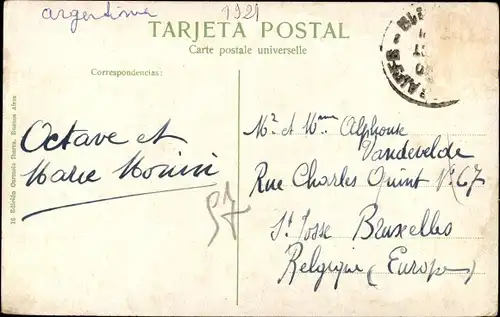 argentina
1921
TARJETA POSTAL
Carte postale universelle
Correspondencias:
Octave et
Marie Monin
57
Mr et Mme Alphonse
Vandevelde
Rue Charles Quint No 67
St Josse Bruxelles
Belgique (Europe)